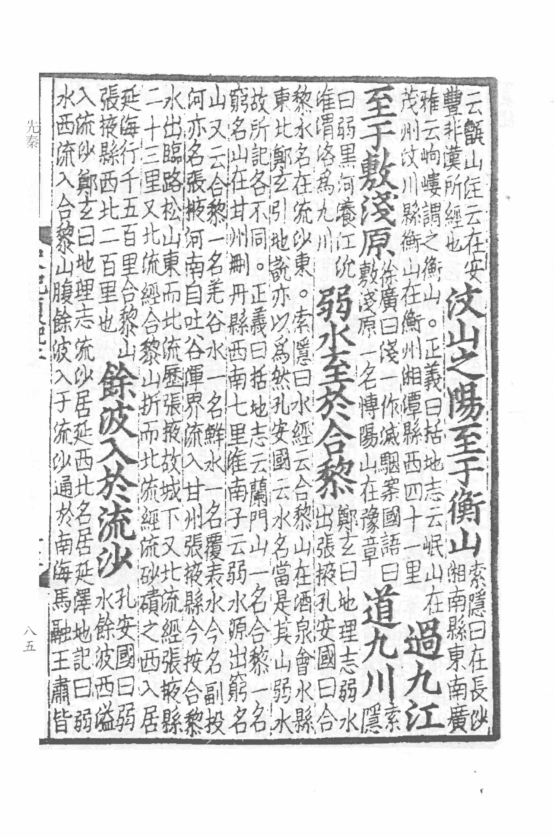 云嶓山徑云在安
豐非漢所經也
汶山之陽至于衡山
索隱曰在長沙
湘南縣東南廣
雅云岣嶁謂之衡山。正義曰括地志云岷山在
茂州汶川縣衡山在衡州湘潭縣西四十一里
過九江
至于敷淺原
徐廣曰淺一作滅駰案國語曰
敷淺原一名博陽山在豫章
道九川
索
隱
曰弱黑河瀁江沇
淮渭洛為九川
弱水至於合黎
鄭玄曰地理志弱水
出張掖孔安國曰合
黎水名在流沙東。索隱曰水經云合黎山在酒泉會水縣
東北鄭玄引地說亦以為然孔安國云水名當是其山弱水
故所記各不同。正義曰括地志云蘭門山一名合黎一名
窮名山在甘州刪丹縣西南七里淮南子云弱水源出窮名
山又云合黎一名羌谷水一名鮮水一名覆表水今名副投
河亦名張掖河南自吐谷渾界流入甘州張掖縣今按合黎
水出臨路松山東而北流歷張掖故城下又北流經張掖縣
二十三里又北流經合黎山折而北流經流砂磧之西入居
延海行千五百里合黎山
張掖縣西北二百里也
餘波入於流沙
孔安國曰弱
水餘波西溢
入流沙鄭玄曰地理志流沙居延西北名居延澤地記曰弱
水西流入合黎山腹餘波入于流沙通於南海馬融王肅皆
先秦
八五